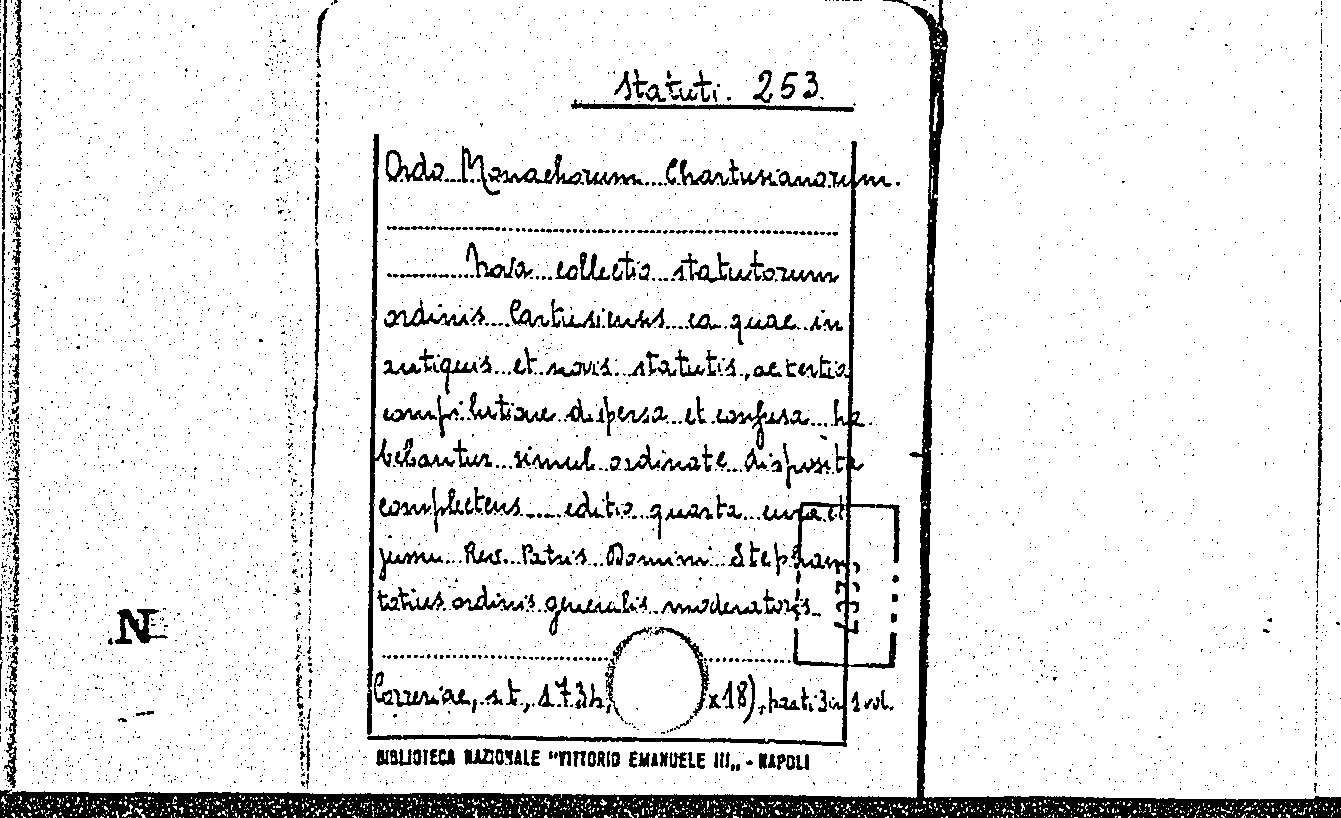 Statuti. 253.
Ordo Monachorum Chartusianorum.
Nova collectio statutorum
ordinis Cartusiensis ea quae in
antiquis et novis statutis, ac tertia
compilatione dispersa et confusa ha
bebantur simul ordinate disposita
complectens editio quarta cura et
jussu Rev. Patris Domini Stephani,
totius ordinis generalis moderatoris
Correriae, s.t., 173
x18), parti 3 in 1 vol.
BIBLIOTECA NAZIONALE "VITTORIO EMANUELE III„ - NAPOLI
N